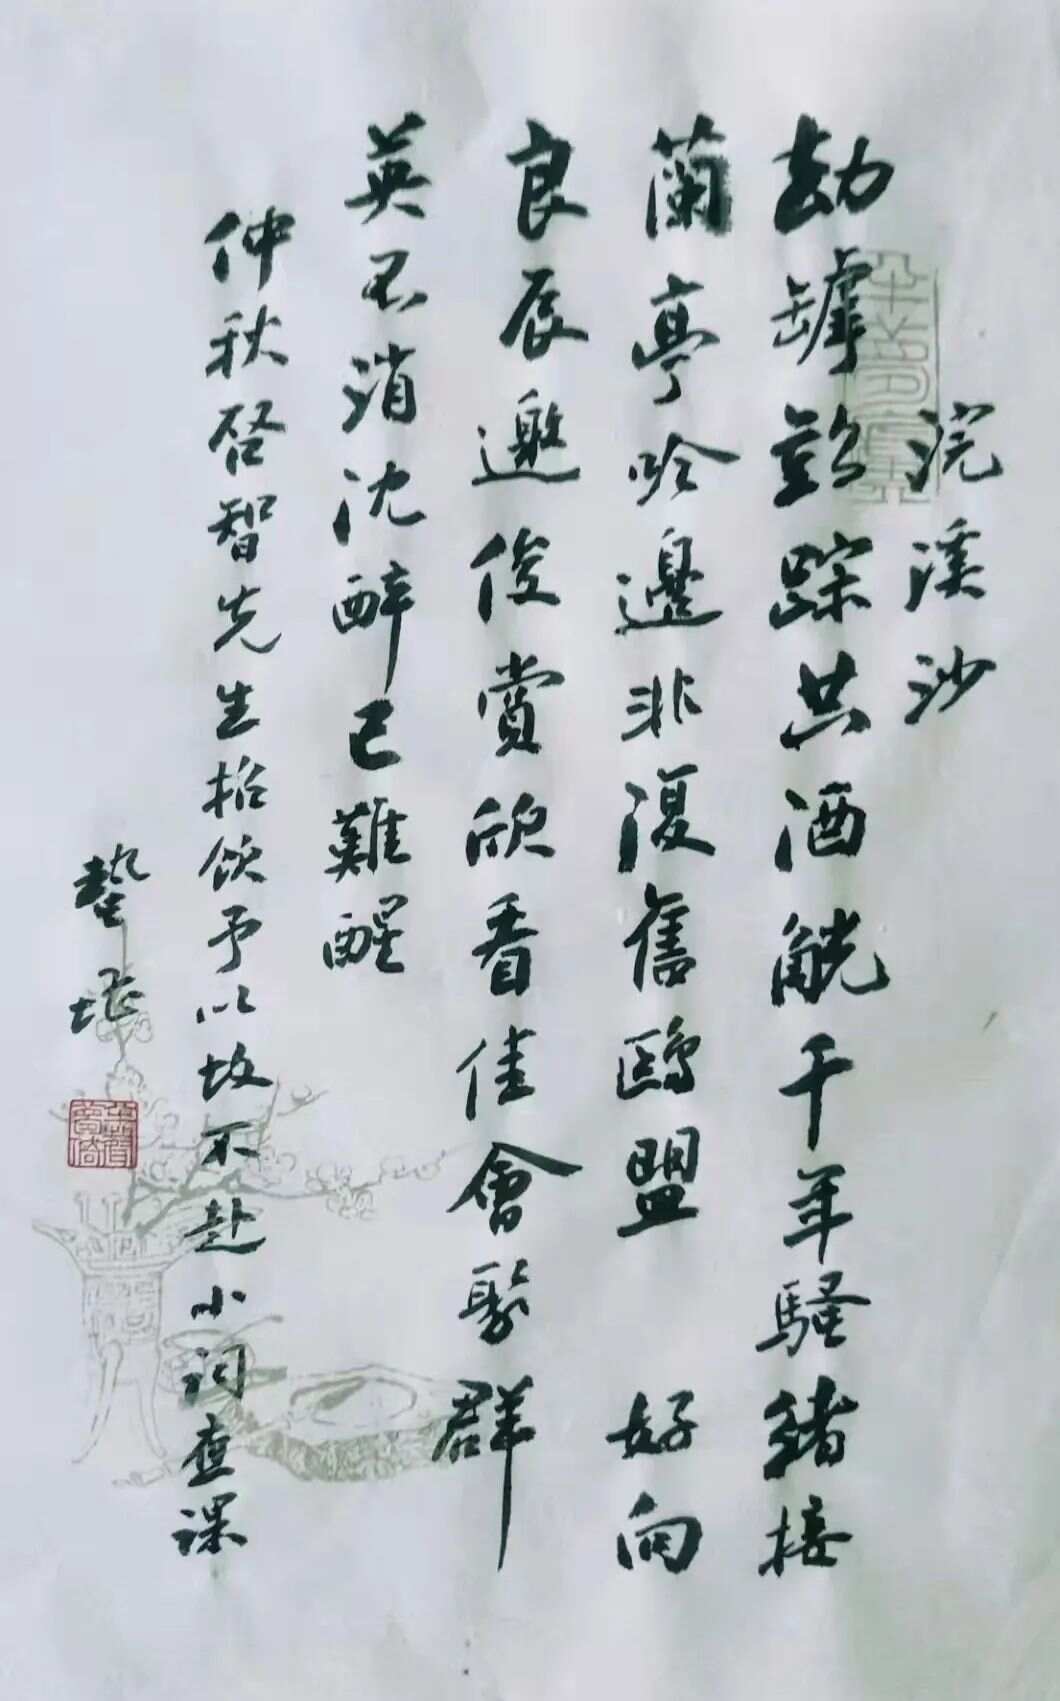 浣溪沙
劫罅歡蹤共酒觥千年騷緒接
蘭亭吟邊非復舊鷗盟 好向
良辰邀俊賞欣看佳會聚群
英不消沈醉已難醒
仲秋啓智先生招飲予以故不赴小词查課
墊堪